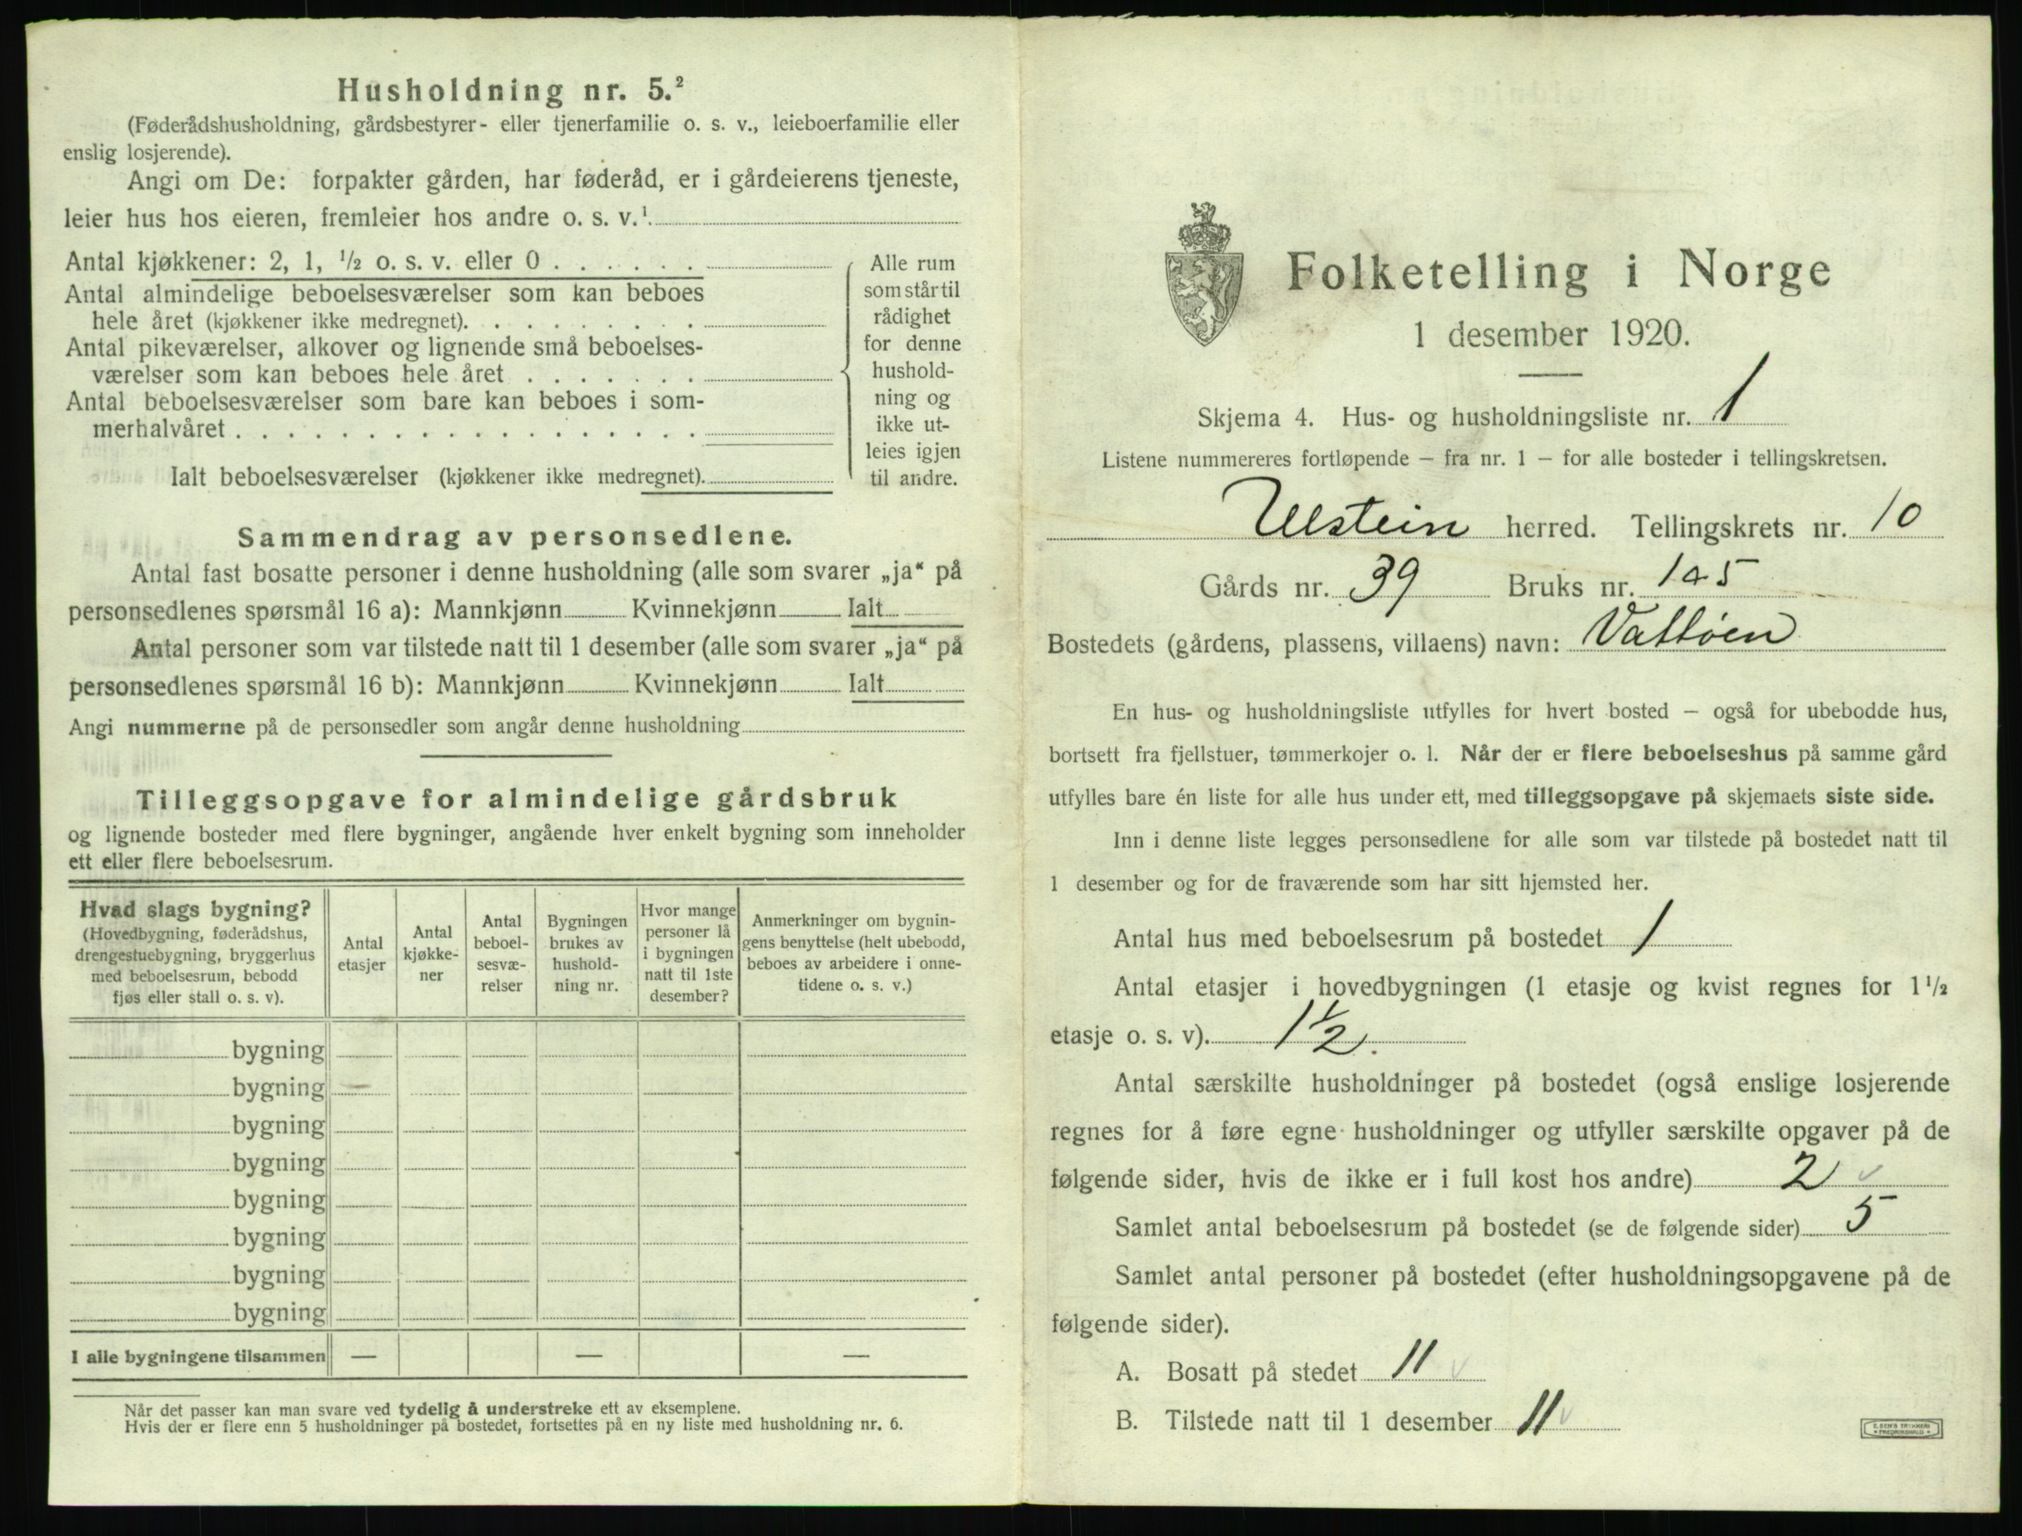 Husholdning nr. 5.²
(Føderådshusholdning, gårdsbestyrer- eller tjenerfamilie o. s. v., leieboerfamilie eller
enslig losjerende).
Angi om De: forpakter gården, har føderåd, er i gårdeierens tjeneste,
leier hus hos eieren, fremleier hos andre o. s. v.¹
Antal kjøkkener: 2, 1, ½ o. s. v. eller 0 . . . . . .
Antal almindelige beboelsesværelser som kan beboes
hele året (kjøkkener ikke medregnet). . . . . . . . .
Antal pikeværelser, alkover og lignende små beboelses-
værelser som kan beboes hele året . . . . . . .
Antal beboelsesværelser som bare kan beboes i som-
merhalvåret . . . . . . . . . . . . . . . . . .
Ialt beboelsesværelser (kjøkkener ikke medregnet).
Alle rum
som står til
rådighet
for denne
hushold-
ning og
ikke ut-
leies igjen
til andre.
Sammendrag av personsedlene.
Antal fast bosatte personer i denne husholdning (alle som svarer „ja“ på
personsedlenes spørsmål 16 a): Mannkjønn Kvinnekjønn Ialt
Antal personer som var tilstede natt til 1 desember (alle som svarer „ja“ på
personsedlenes spørsmål 16 b): Mannkjønn Kvinnekjønn Ialt
Angi nummerne på de personsedler som angår denne husholdning
Tilleggsopgave for almindelige gårdsbruk
og lignende bosteder med flere bygninger, angående hver enkelt bygning som inneholder
ett eller flere beboelsesrum.
Hvad slags bygning?
(Hovedbygning, føderådshus,
drengestuebygning, bryggerhus
med beboelsesrum, bebodd
fjøs eller stall o. s. v).
Antal
etasjer
Antal
kjøkke-
ner
Antal
beboel-
sesvæ-
relser
Bygningen
brukes av
hushold-
ning nr.
Hvor mange
personer lå
i bygningen
natt til 1ste
desember?
Anmerkninger om bygnin-
gens benyttelse (helt ubebodd,
beboes av arbeidere i onne-
tidene o. s. v.)
bygning
bygning
bygning
bygning
bygning
bygning
bygning
bygning
I alle bygningene tilsammen — — —
Når det passer kan man svare ved tydelig å understreke ett av eksemplene.
Hvis der er flere enn 5 husholdninger på bostedet, fortsettes på en ny liste med husholdning nr. 6.
Folketelling i Norge
1 desember 1920.
Skjema 4. Hus- og husholdningsliste nr. 1
Listene nummereres fortløpende – fra nr. 1 – for alle bosteder i tellingskretsen.
Ulstein herred. Tellingskrets nr. 10
Gårds nr. 39 Bruks nr. 1a5
Bostedets (gårdens, plassens, villaens) navn: Vattøen
En hus- og husholdningsliste utfylles for hvert bosted – også for ubebodde hus,
bortsett fra fjellstuer, tømmerkojer o. l. Når der er flere beboelseshus på samme gård
utfylles bare én liste for alle hus under ett, med tilleggsopgave på skjemaets siste side.
Inn i denne liste legges personsedlene for alle som var tilstede på bostedet natt til
1 desember og for de fraværende som har sitt hjemsted her.
Antal hus med beboelsesrum på bostedet 1
Antal etasjer i hovedbygningen (1 etasje og kvist regnes for 1½
etasje o. s. v). 1½.
Antal særskilte husholdninger på bostedet (også enslige losjerende
regnes for å føre egne husholdninger og utfyller særskilte opgaver på de
følgende sider, hvis de ikke er i full kost hos andre) 2 ✓
Samlet antal beboelsesrum på bostedet (se de følgende sider) 5
Samlet antal personer på bostedet (efter husholdningsopgavene på de
følgende sider).
A. Bosatt på stedet 11 ✓
B. Tilstede natt til 1 desember 11 ✓